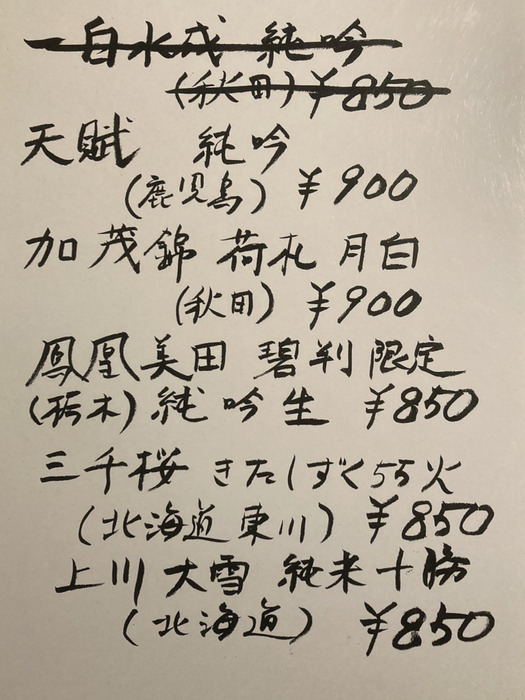 一白水成 純吟
(秋田) ¥850
天賦 純吟
(鹿児島) ¥900
加茂錦 荷札 月白
(秋田) ¥900
鳳凰美田 碧判 限定
(栃木) 純吟生 ¥850
三千桜 きたしずく55火
(北海道東川) ¥850
上川大雪 純米 十勝
(北海道) ¥850